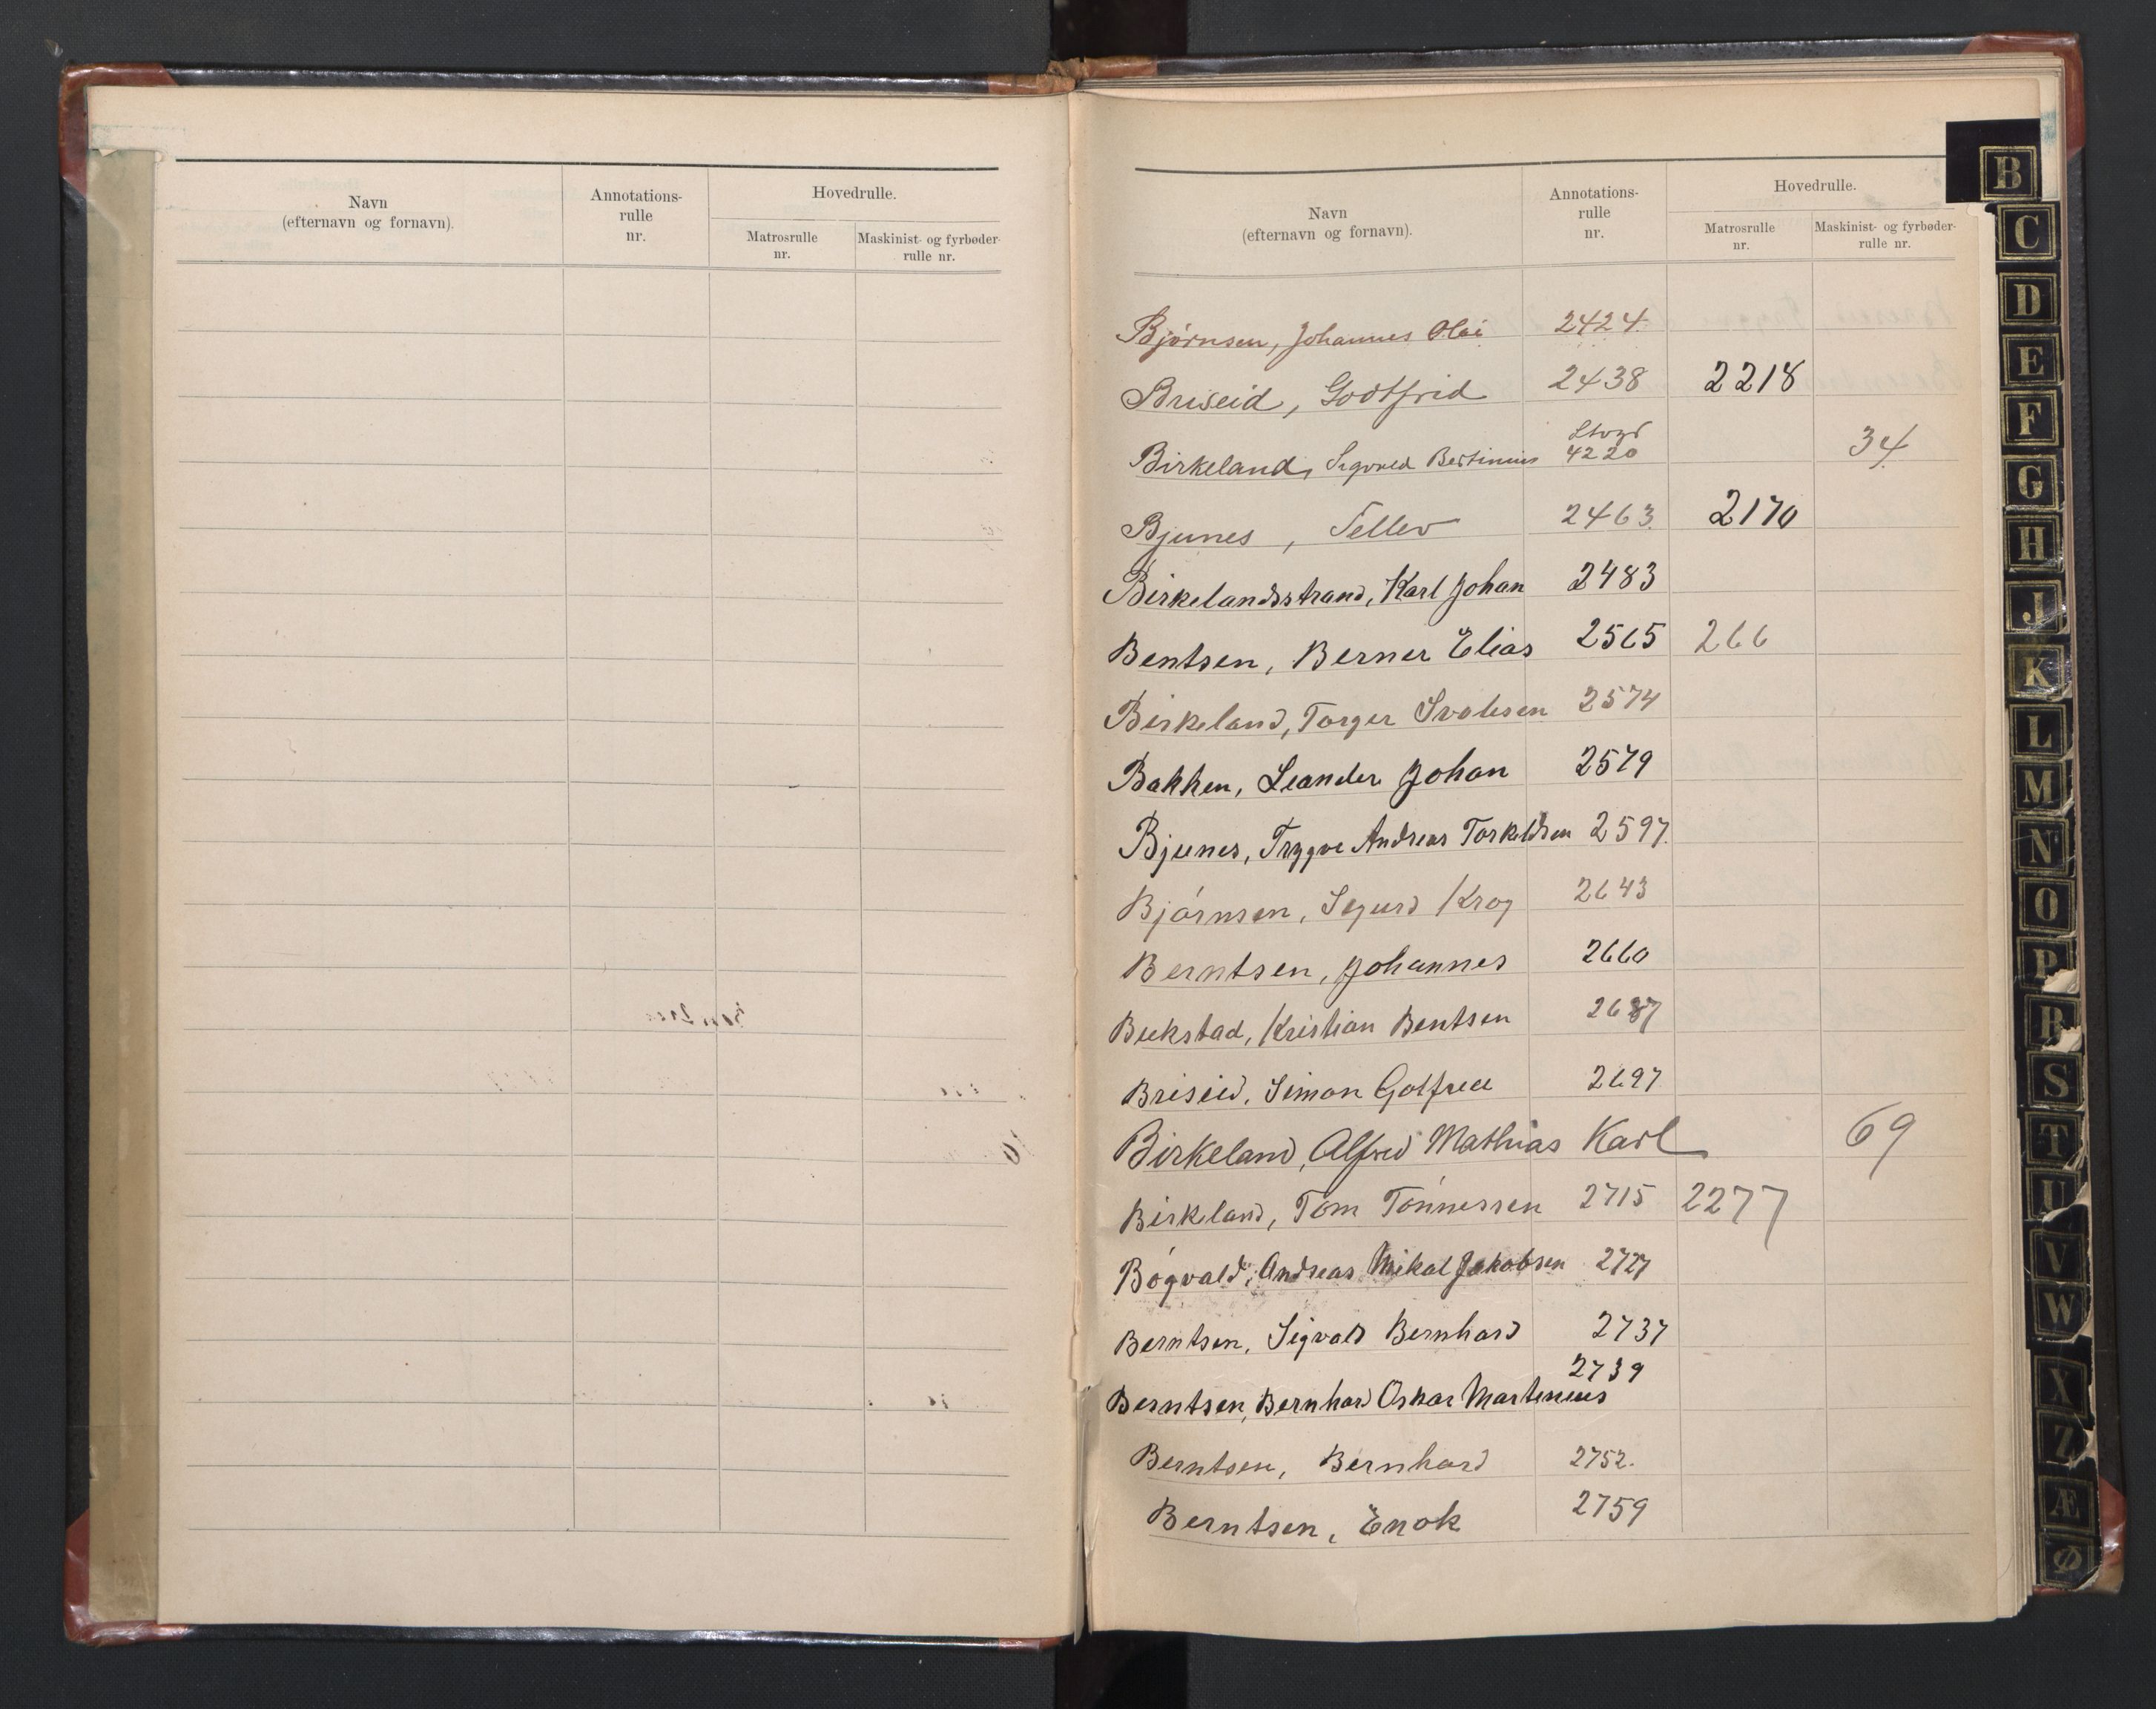 Navn
(efternavn og fornavn).
Annotations-
rulle
nr.
Hovedrulle.
Matrosrulle
nr.
Maskinist- og fyrbøder-
rulle nr.
Navn
(efternavn og fornavn).
Annotations-
rulle
nr.
Hovedrulle.
Matrosrulle
nr.
Maskinist- og fyrbøder-
rulle nr.
Bjørnsen, Johannes Olai 2424.
Briseid, Godtfrid 2438 2218
Birkeland, Sigvald Bertinius 4220 34
Bjunes, Tellev 2463. 2170
Birkelandsstrand, Karl Johan 2483
Bentsen, Berner Elias 2565 266
Birkeland, Torger 2574
Bakken, Leander Johan 2579
Bjunes, Trygve Andreas Torkeldsen 2597.
Bjørnsen, Sigurd Krog 2643
Berntsen, Johannes 2660
Kristian Bentsen 2687
Briseid, Simon Gotfred 2697
Birkeland, Alfred Mathias Karl 69
Birkeland, Tom Tønnessen 2715 2277
Bøgvald, Andreas Mikal Jakobsen 2727
Berntsen, Sigvald Bernhard 2737
2739
Berntsen, Bernhard Oskar Martinius
Berntsen, Bernhard 2752.
Berntsen, Enok 2759
B
C
D
E
F
G
H
J
K
L
M
N
O
P
R
S
T
U
V
W
X
Z
Æ
Ø